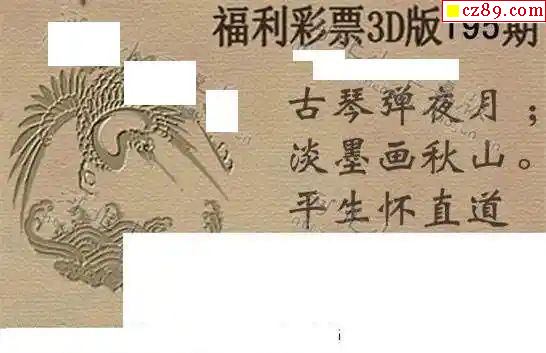 cz89.com
福利彩票3D版195期
古琴弹夜月；
淡墨画秋山。
平生怀直道